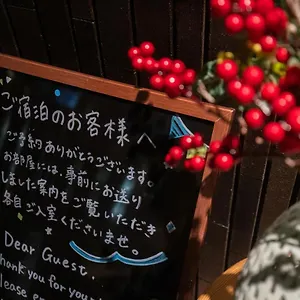 ご宿泊のお客様へ
ご予約ありがとうございます。
お部屋には、事前にお送り
しました案内をご覧いただき
各自ご入室くださいませ。
Dear Guest,
hank you for your
ease en